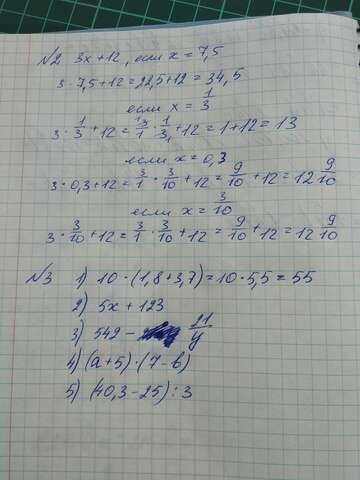 №2 3x+12, если x = 7,5
3·7,5+12=22,5+12=34,5
если x = 1/3
3·1/3+12=3/1·1/3+12=1+12=13
если x=0,3
3·0,3+12=3/1·3/10+12=9/10+12=12 9/10
если x=3/10
3·3/10+12=3/1·3/10+12=9/10+12=12 9/10
№3 1) 10·(1,8+3,7)=10·5,5=55
2) 5x+123
3) 542- 21/y
4) (a+5)·(7-в)
5) (40,3-25):3